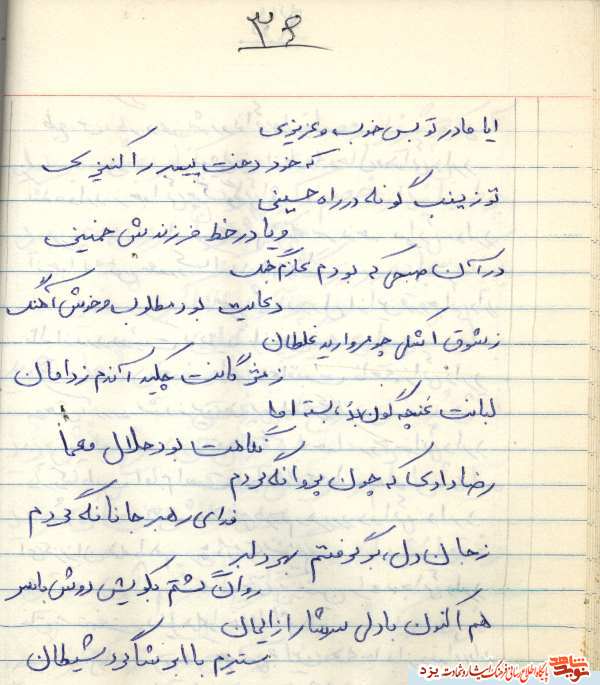 ۳۶
ایا مادر تو بس خوب و عزیزی
که خود دخت پیمبر را کنیزی
تو زینب گونه در راه حسینی
و یا در خط فرزندش خمینی
در آن صبحی که بودم عازم جنگ
دعایت بود مطلوب و خوش آهنگ
ز شوق اشکی چو مروارید غلطان
ز مژگانت چکید آندم ز دامان
لبانت غنچه گون بُد، بسته اما
نگاهت بود حلال معما
رضا دادی که چون پروانه گردم
فدای رهبر جانانه گردم
ز جان دل، برگرفتم بهر دلبر
روان گشتم بکویش دوش با سر
هم اکنون با دلی سرشار از ایمان
ستیزم با ابر شاگرد شیطان
نوید شاهد
پایگاه اطلاع رسانی فرهنگ ایثار و شهادت یزد